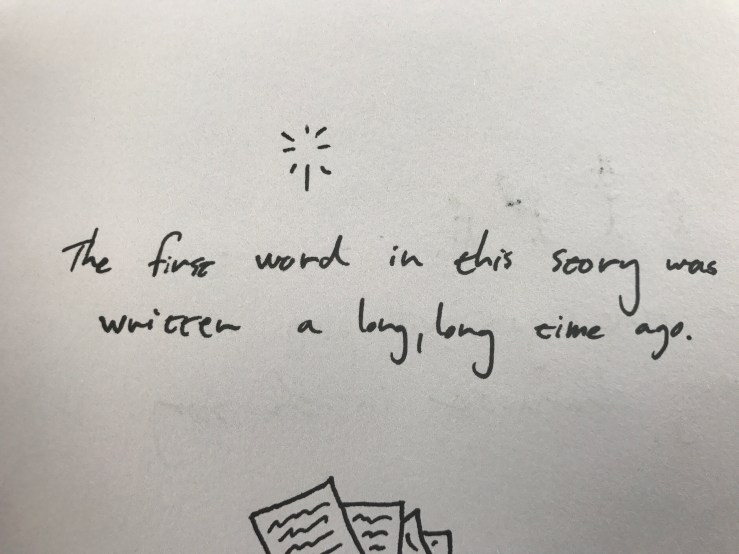 The first word in this story was
written a long, long time ago.